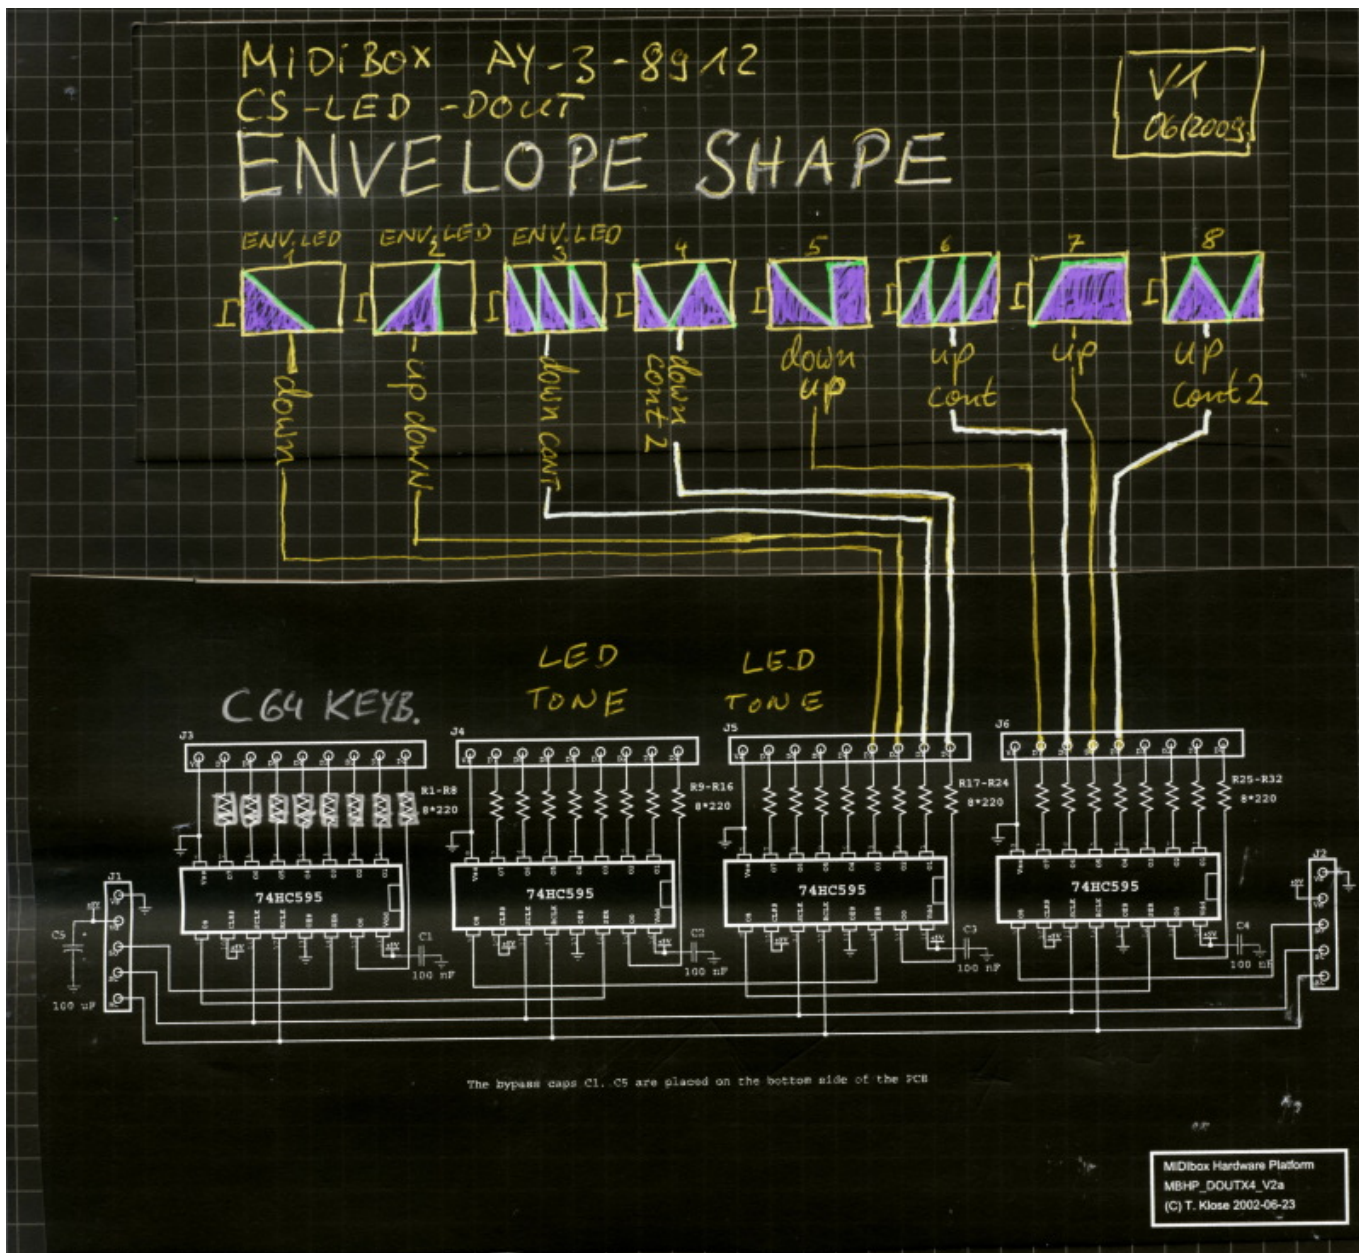 MIDIBOX AY-3-8912
CS-LED-DOUT
ENVELOPE SHAPE
V1
06/2009
ENV.LED
1
ENV.LED
2
ENV.LED
3
4
5
6
7
8
down
up down
down cont
down
cont 2
down
up
up
cont
up
up
cont 2
LED
TONE
LED
TONE
C64 KEYB.
J3
J4
J5
J6
R1-R8
8*220
R9-R16
8*220
R17-R24
8*220
R25-R32
8*220
74HC595
74HC595
74HC595
74HC595
J1
J2
C5
100 uF
C1
100 nF
C2
100 nF
C3
100 nF
C4
100 nF
The bypass caps C1. C5 are placed on the bottom side of the PCB
MIDIbox Hardware Platform
MBHP_DOUTX4_V2a
(C) T. Klose 2002-06-23